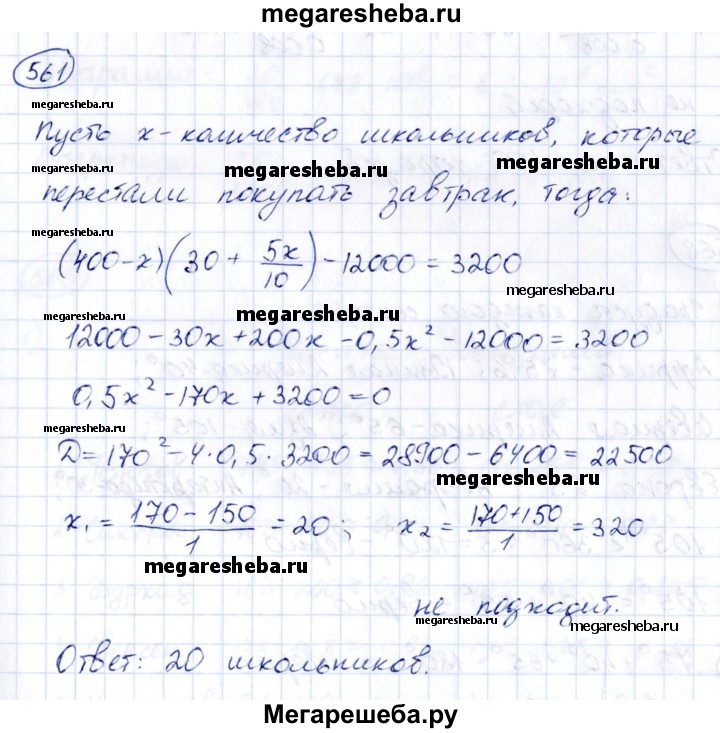 megaresheba.ru
561
megaresheba.ru
Пусть x - количество школьников, которые
megaresheba.ru
megaresheba.ru
перестали покупать завтрак, тогда:
megaresheba.ru
(400-x)(30 + 5x/10) - 12000 = 3200
megaresheba.ru
megaresheba.ru
12000 - 30x + 200x - 0,5x² - 12000 = 3200
0,5x² - 170x + 3200 = 0
megaresheba.ru
Д = 170² - 4·0,5·3200 = 28900 - 6400 = 22500
megaresheba.ru
x₁ = (170 - 150)/1 = 20; x₂ = (170+150)/1 = 320
megaresheba.ru
не подходит.
megaresheba.ru
megaresheba.ru
Ответ: 20 школьников.
Мегарешеба.ру